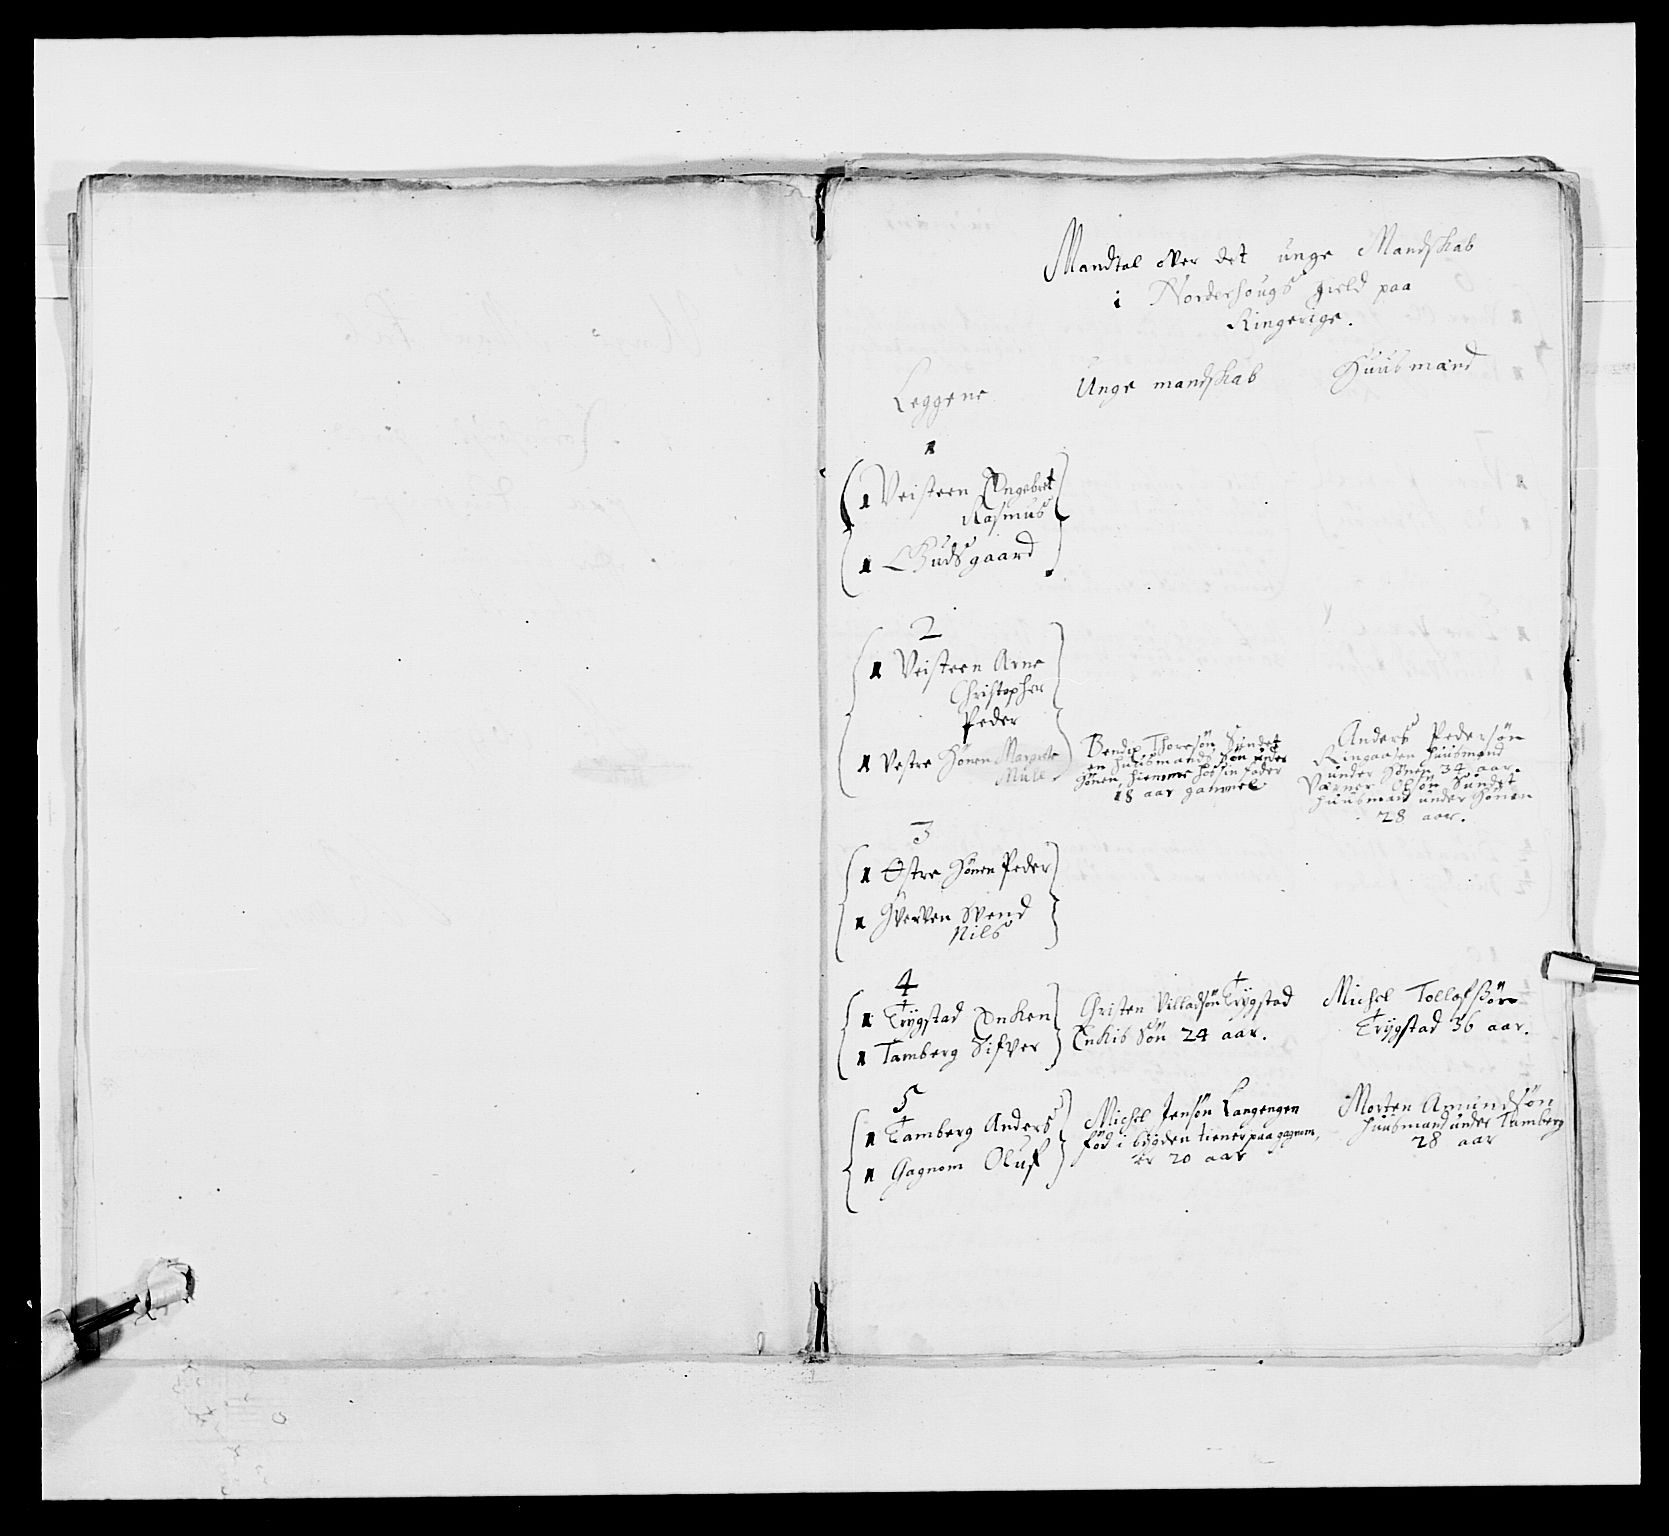 Mandtal over det unge Mandskab
i Norderhougs gield paa
Ringerige.
Leggene Unge mandskab Huusmænd
1
1 Veisteen Engebret
Rasmus
1 Gudsgaard
2
1 Veisteen Arne
Christopher
Peder
1 Vestre Hønen Margrete
Mule
Bendix Thoresøn Sundet
en huusmands søn under
Hønen, hiemme hos sin fader
18 aar gammel
Anders Pedersøn
Ringaasen huusmand
under Hønen 34 aar.
Værner Olsøn Sundet
huusmand under Hønen
28 aar.
3
1 Østre Hønen Peder
1 Hverven Svend
Nils
4
1 Trygstad Enken
1 Tamberg Sifver
Christen Villadsøn Trygstad
Enkis Søn 24 aar.
Michel Tollofsøn
Trygstad 36 aar.
5
1 Tamberg Anders
1 Gagnom Oluf
Michel Jensøn Langengen
fød i bygden tiener paa gagnom,
er 20 aar
Morten Amundsøn
huusmand under Tamberg
28 aar